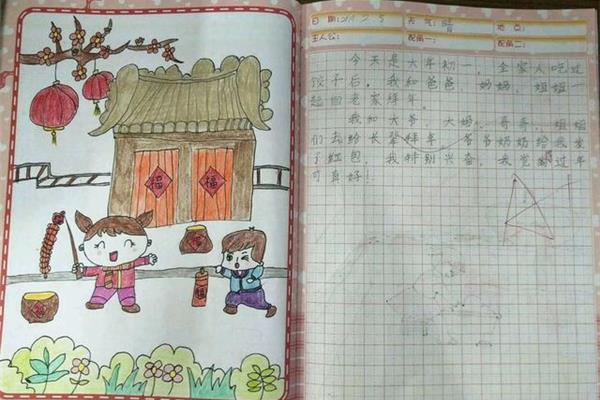 日期:2019.2.5 天气:晴 地点:
主人公: 配角一: 配角二:
今天是大年初一，全家人吃过
饺子后，我和爸爸、妈妈、姐姐一
起回老家拜年。
我和大爷、大妈、哥哥、姐姐
们去给长辈拜年，爷爷奶奶给我发
了红包，我特别兴奋，我觉得过年
可真好！
福 福